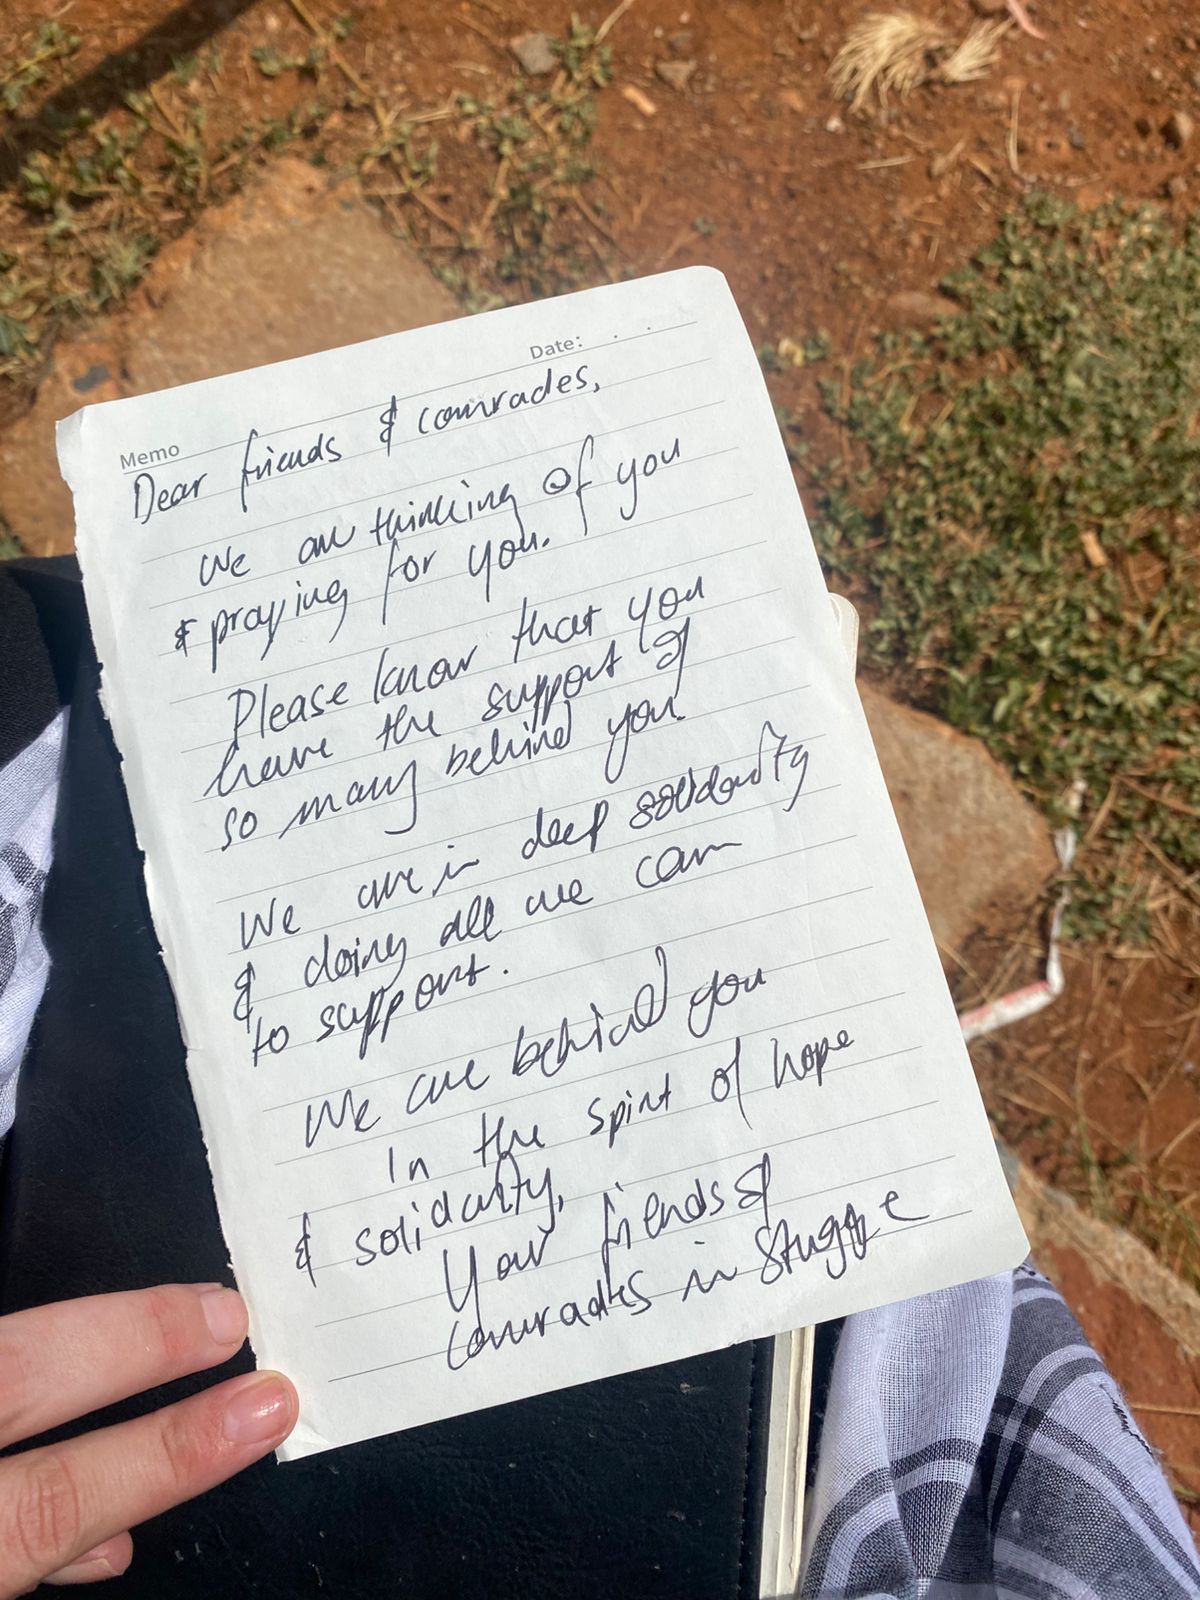 Date: . .
Memo
Dear friends & comrades,
We are thinking of you
& praying for you.
Please know that you
have the support of
so many behind you.
We are in deep solidarity
& doing all we can
to support.
We are behind you
In the spirit of hope
& solidarity,
Your friends &
comrades in struggle